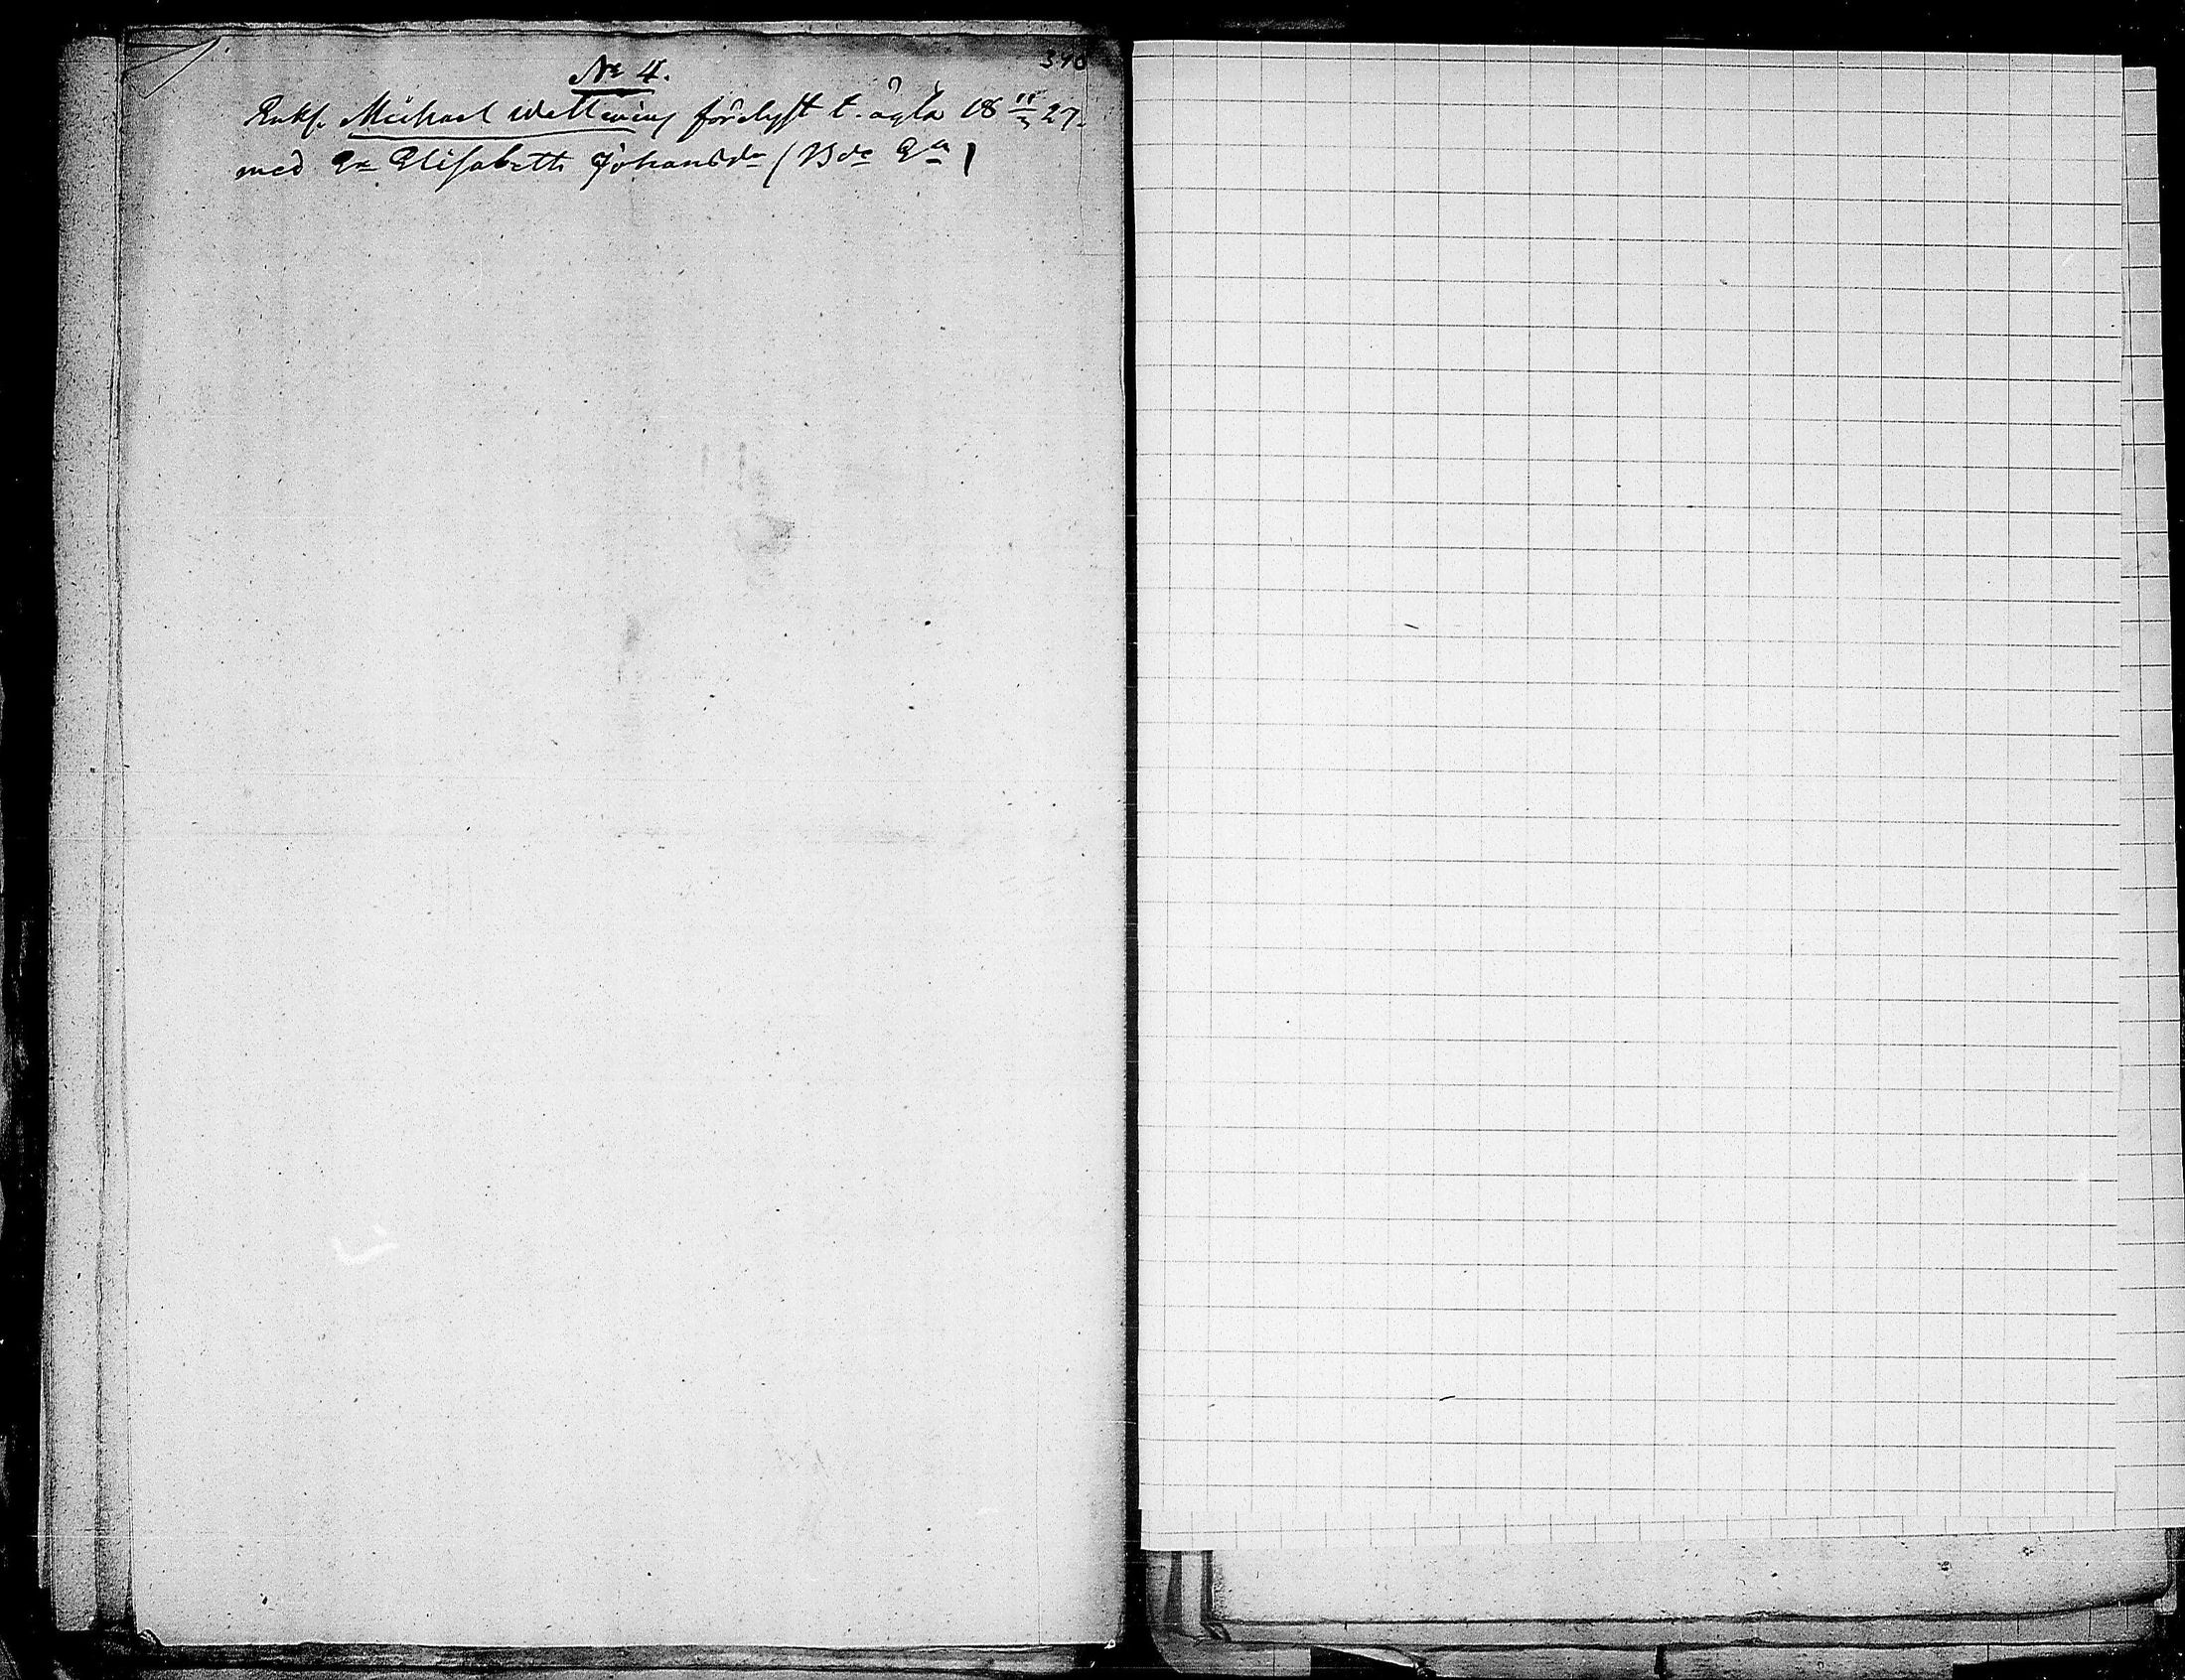 390
No 4.
Enkl. Michael Wettering förlyst t. ägta 18 11/3 27.
med Elisabeth Johansdr (Bde